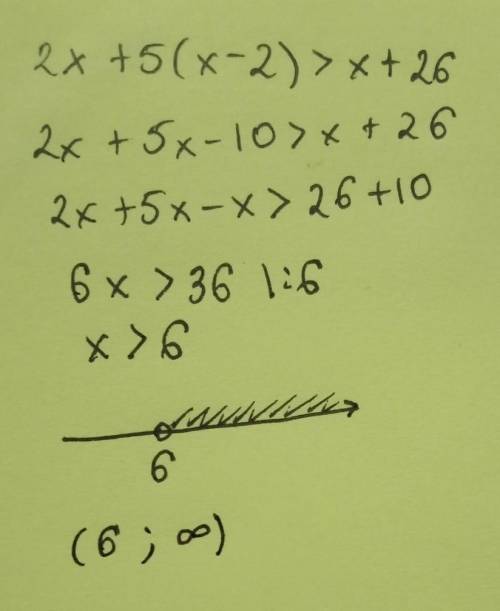 2x + 5(x - 2) > x + 26
2x + 5x - 10 > x + 26
2x + 5x - x > 26 + 10
6x > 36 |:6
x > 6
6
(6 ; ∞)